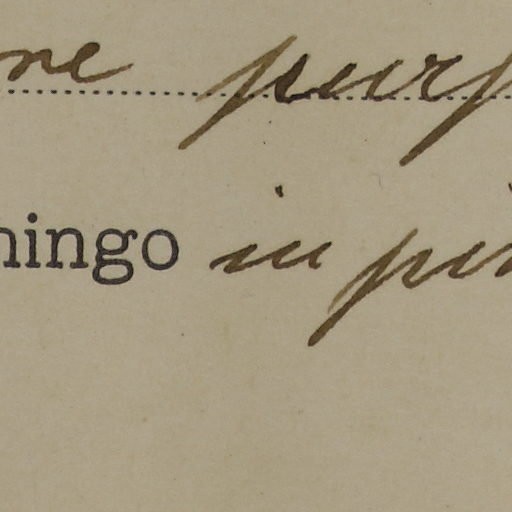 ne purp
ningo in pin